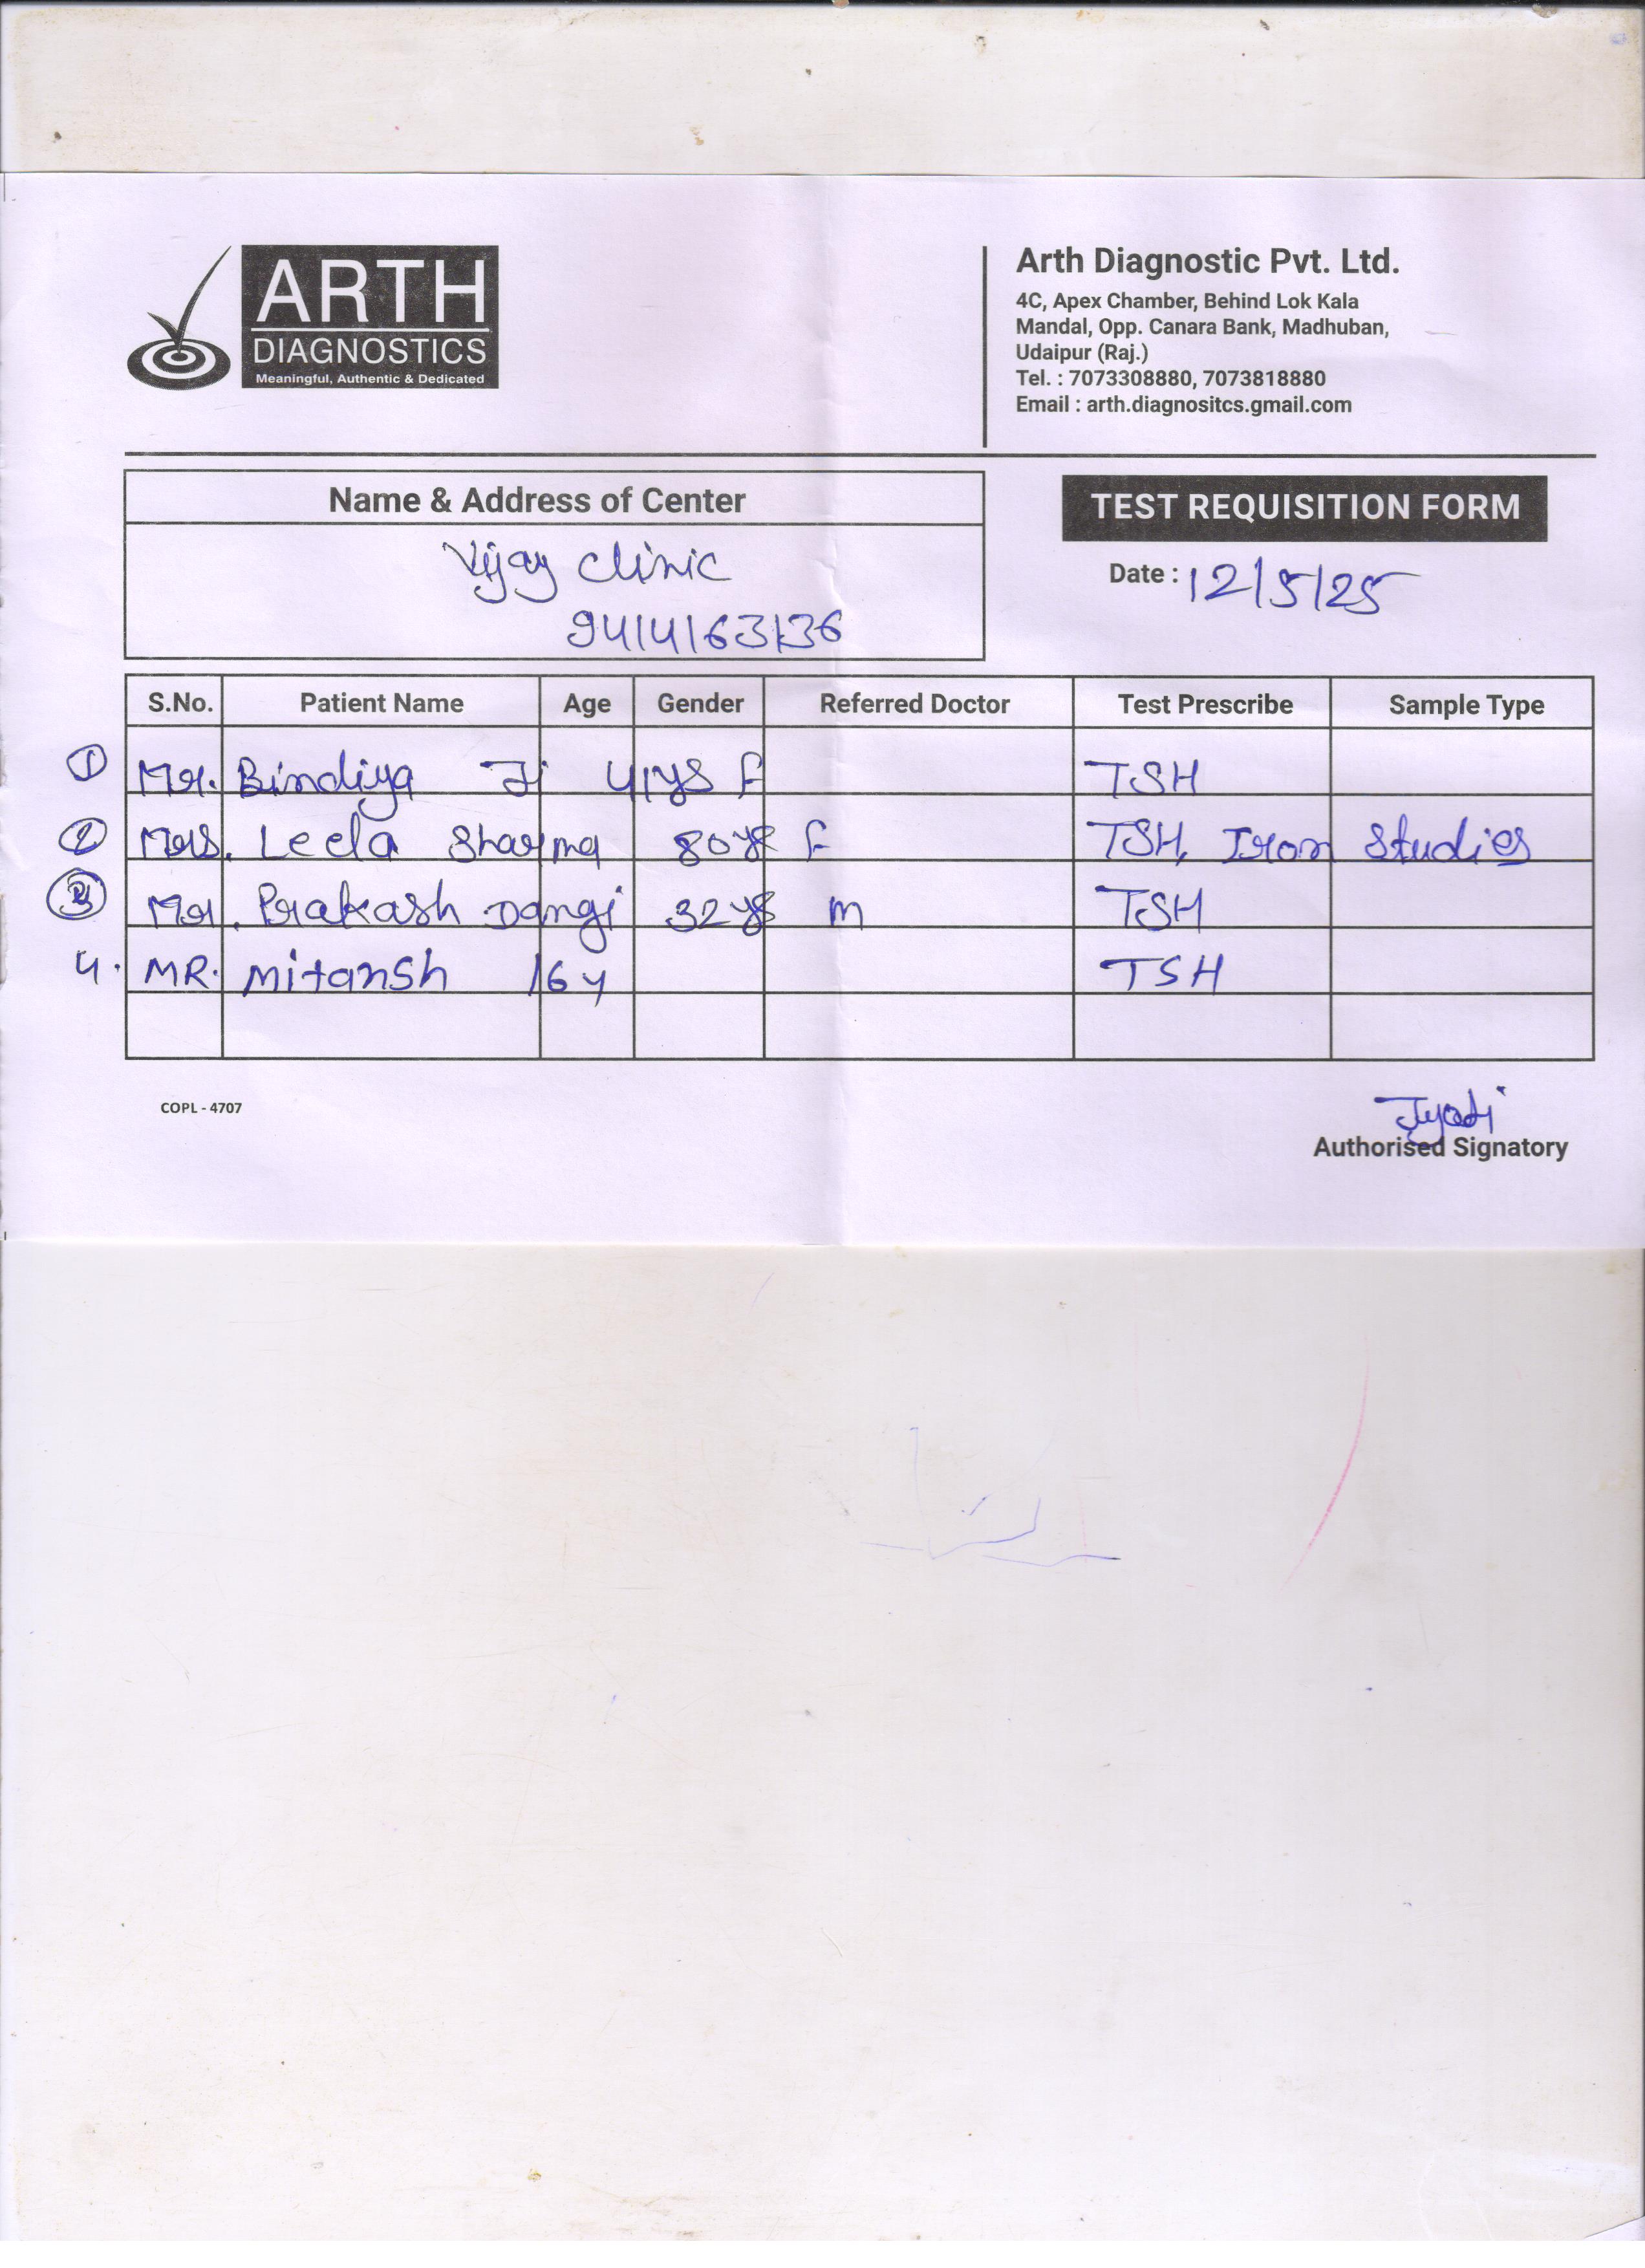 ARTH
DIAGNOSTICS
Meaningful, Authentic & Dedicated
Arth Diagnostic Pvt. Ltd.
4C, Apex Chamber, Behind Lok Kala
Mandal, Opp. Canara Bank, Madhuban,
Udaipur (Raj.)
Tel. : 7073308880, 7073818880
Email : arth.diagnositcs.gmail.com
Name & Address of Center
Vijay Clinic
9414163136
TEST REQUISITION FORM
Date : 12/5/25
S.No. Patient Name Age Gender Referred Doctor Test Prescribe Sample Type
1 Mr. Bindiya Ji 41ys F TSH
2 Mrs. Leela Sharma 80ys F TSH, Iron Studies
3 Mr. Prakash Dangi 32ys m TSH
4. MR. Mitansh 16y TSH
COPL - 4707
Jyoti
Authorised Signatory